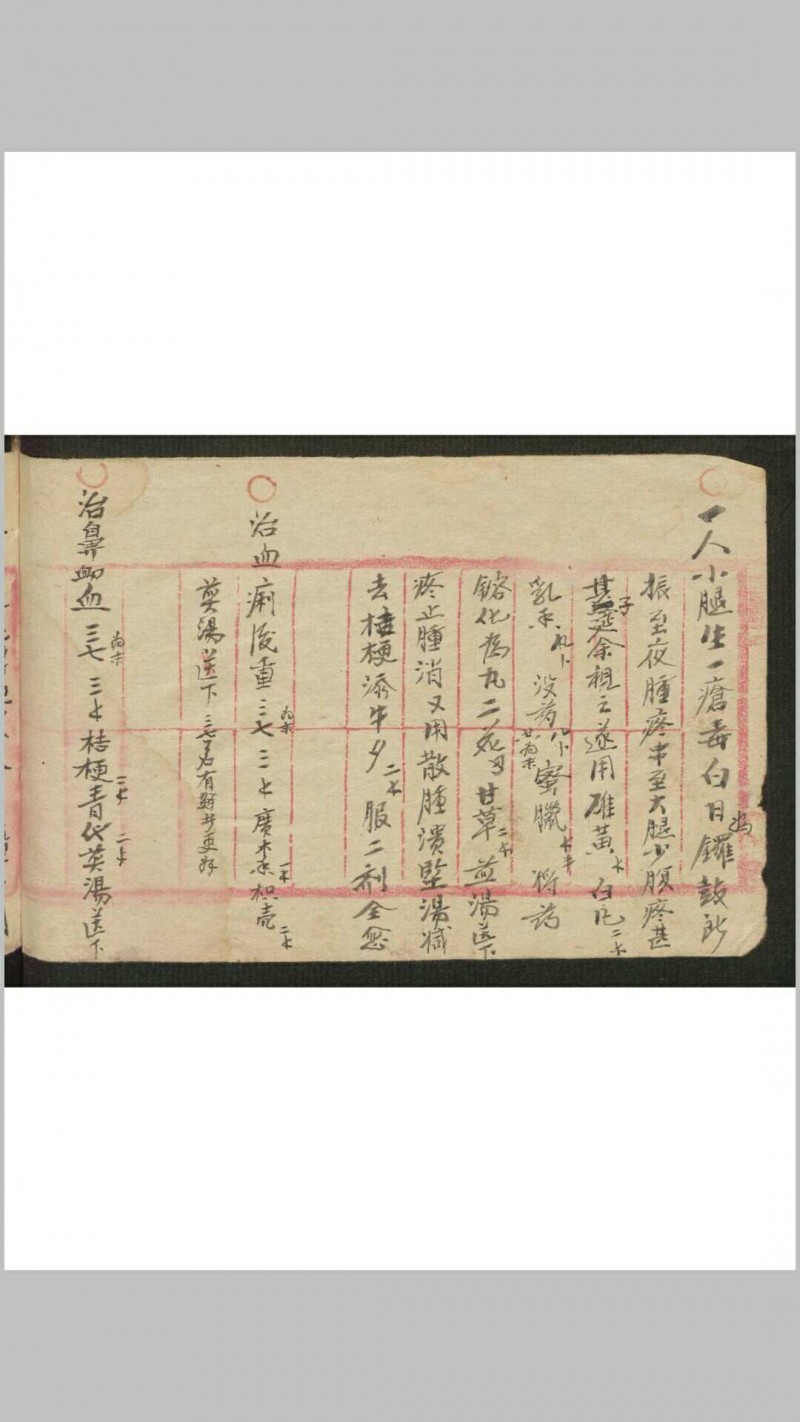 一人小腿生一瘡毒白日鑼鼓所
振至夜腫疼串至大腿少腹疼甚
其子延余視之遂用雄黃 白凡二
乳香 沒药 蜜臘 將药
鎔化為丸二 甘草 煎湯送下
疼止腫消又用散腫潰堅湯減
去桔梗添牛夕二 服二剂全愈
治血痢後重三七三 為末 廣木香一 枳壳二
煎湯送下
治鼻衂血三七三 為末 桔梗 青代 煎湯送下